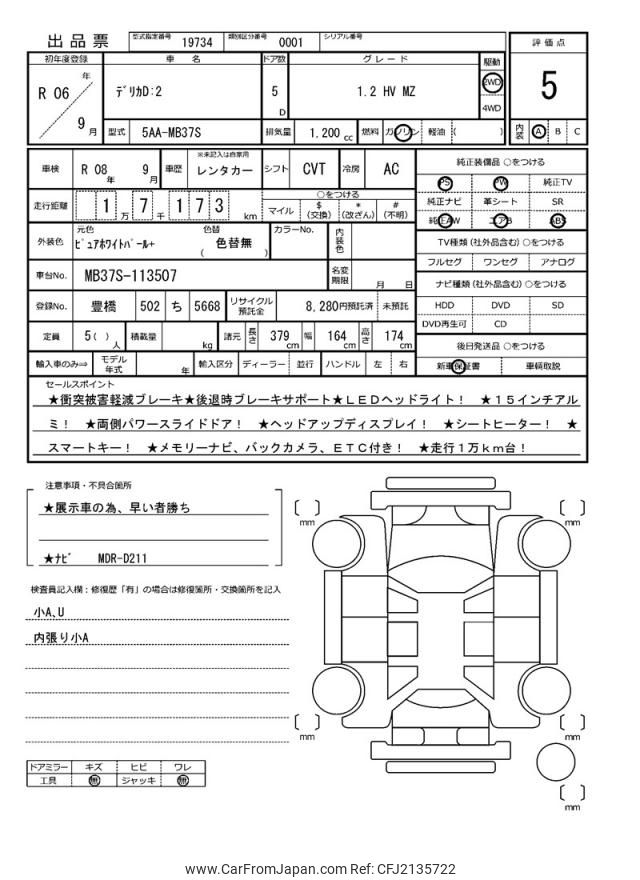 出品票 型式指定番号 19734 類別区分番号 0001 シリアル番号
評価点
初年度登録 車名 ドア数 グレード 駆動
R 06 年 9 月 ﾃﾞﾘｶD:2 5 D 1.2 HV MZ 2WD 4WD
5
型式 5AA-MB37S 排気量 1.200 cc 燃料 ガソリン 軽油 ( )
内装 A B C
車検 R 08 年 9 月 車歴 ※未記入は自家用 レンタカー シフト CVT 冷房 AC
純正装備品 ○をつける
PS PW 純正TV
走行距離 1 万 7 千 1 7 3 km
○をつける
マイル $ (交換) * (改ざん) # (不明)
純正ナビ 革シート SR
純正AW エアB ABS
外装色 元色 ﾋﾟｭｱﾎﾜｲﾄﾊﾟｰﾙ+ 色替 ( 色替無 ) カラーNo. 内装色
TV種類 (社外品含む) ○をつける
フルセグ ワンセグ アナログ
車台No. MB37S-113507 名変期限 月 日
ナビ種類 (社外品含む) ○をつける
登録No. 豊橋 502 ち 5668 リサイクル預託金 8,280円預託済 未預託
HDD DVD SD
DVD再生可 CD
定員 5 ( ) 人 積載量 kg 諸元 長さ 379 cm 幅 164 cm 高さ 174 cm
後日発送品 ○をつける
輸入車のみ⇒ モデル年式 年 輸入区分 ディーラー 並行 ハンドル 左 右
新車保証書 車輌取説
セールスポイント
★衝突被害軽減ブレーキ★後退時ブレーキサポート★ＬＥＤヘッドライト！　★１５インチアル
ミ！　★両側パワースライドドア！　★ヘッドアップディスプレイ！　★シートヒーター！　★
スマートキー！　★メモリーナビ、バックカメラ、ＥＴＣ付き！　★走行１万ｋｍ台！
注意事項・不具合箇所
★展示車の為、早い者勝ち
★ﾅﾋﾞ MDR-D211
検査員記入欄：修復歴「有」の場合は修復箇所・交換箇所を記入
小A､U
内張り小A
mm
mm
mm
mm
mm
ドアミラー キズ ヒビ ワレ
工具 無 ジャッキ 無
www.CarFromJapan.com Ref: CFJ2135722